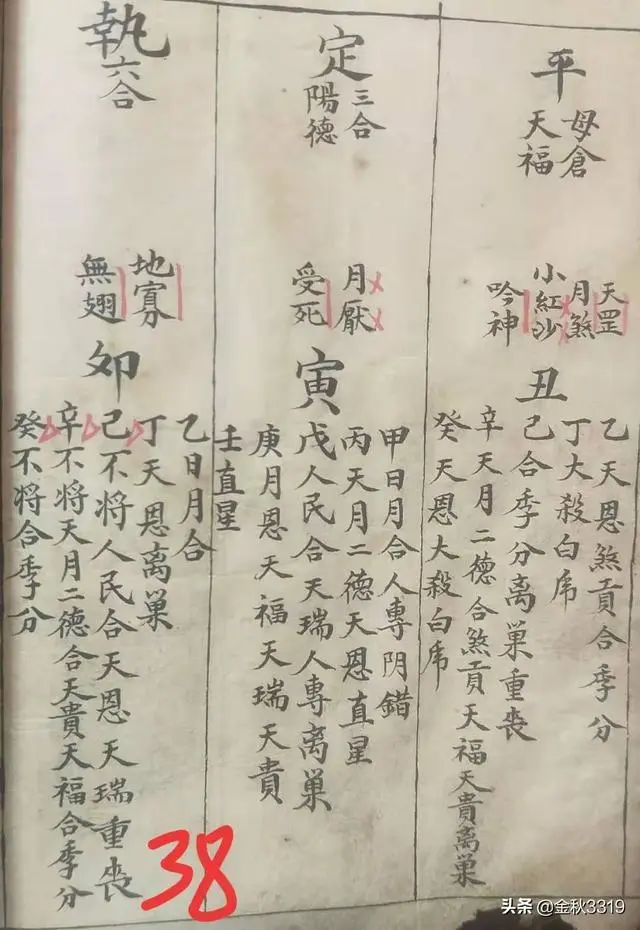 平
母倉
天福
天罡
月煞
小紅沙
吟神
丑
乙天恩煞貢合季分
丁大殺白虎
己合季分離巢重喪
辛天月二德合煞貢天福天貴離巢
癸天恩大殺白虎
定
三合
陽德
月厭
受死
寅
甲日月合人專阴錯
丙天月二德天恩直星
戊人民合天瑞人專離巢
庚月恩天福天瑞天貴
壬直星
執
六合
地寡
無翅
卯
乙日月合
丁天恩离巢
己不将人民合天恩天瑞重喪
辛不将天月二德合天貴天福合季分
癸不将合季分
38
头条 @金秋3319